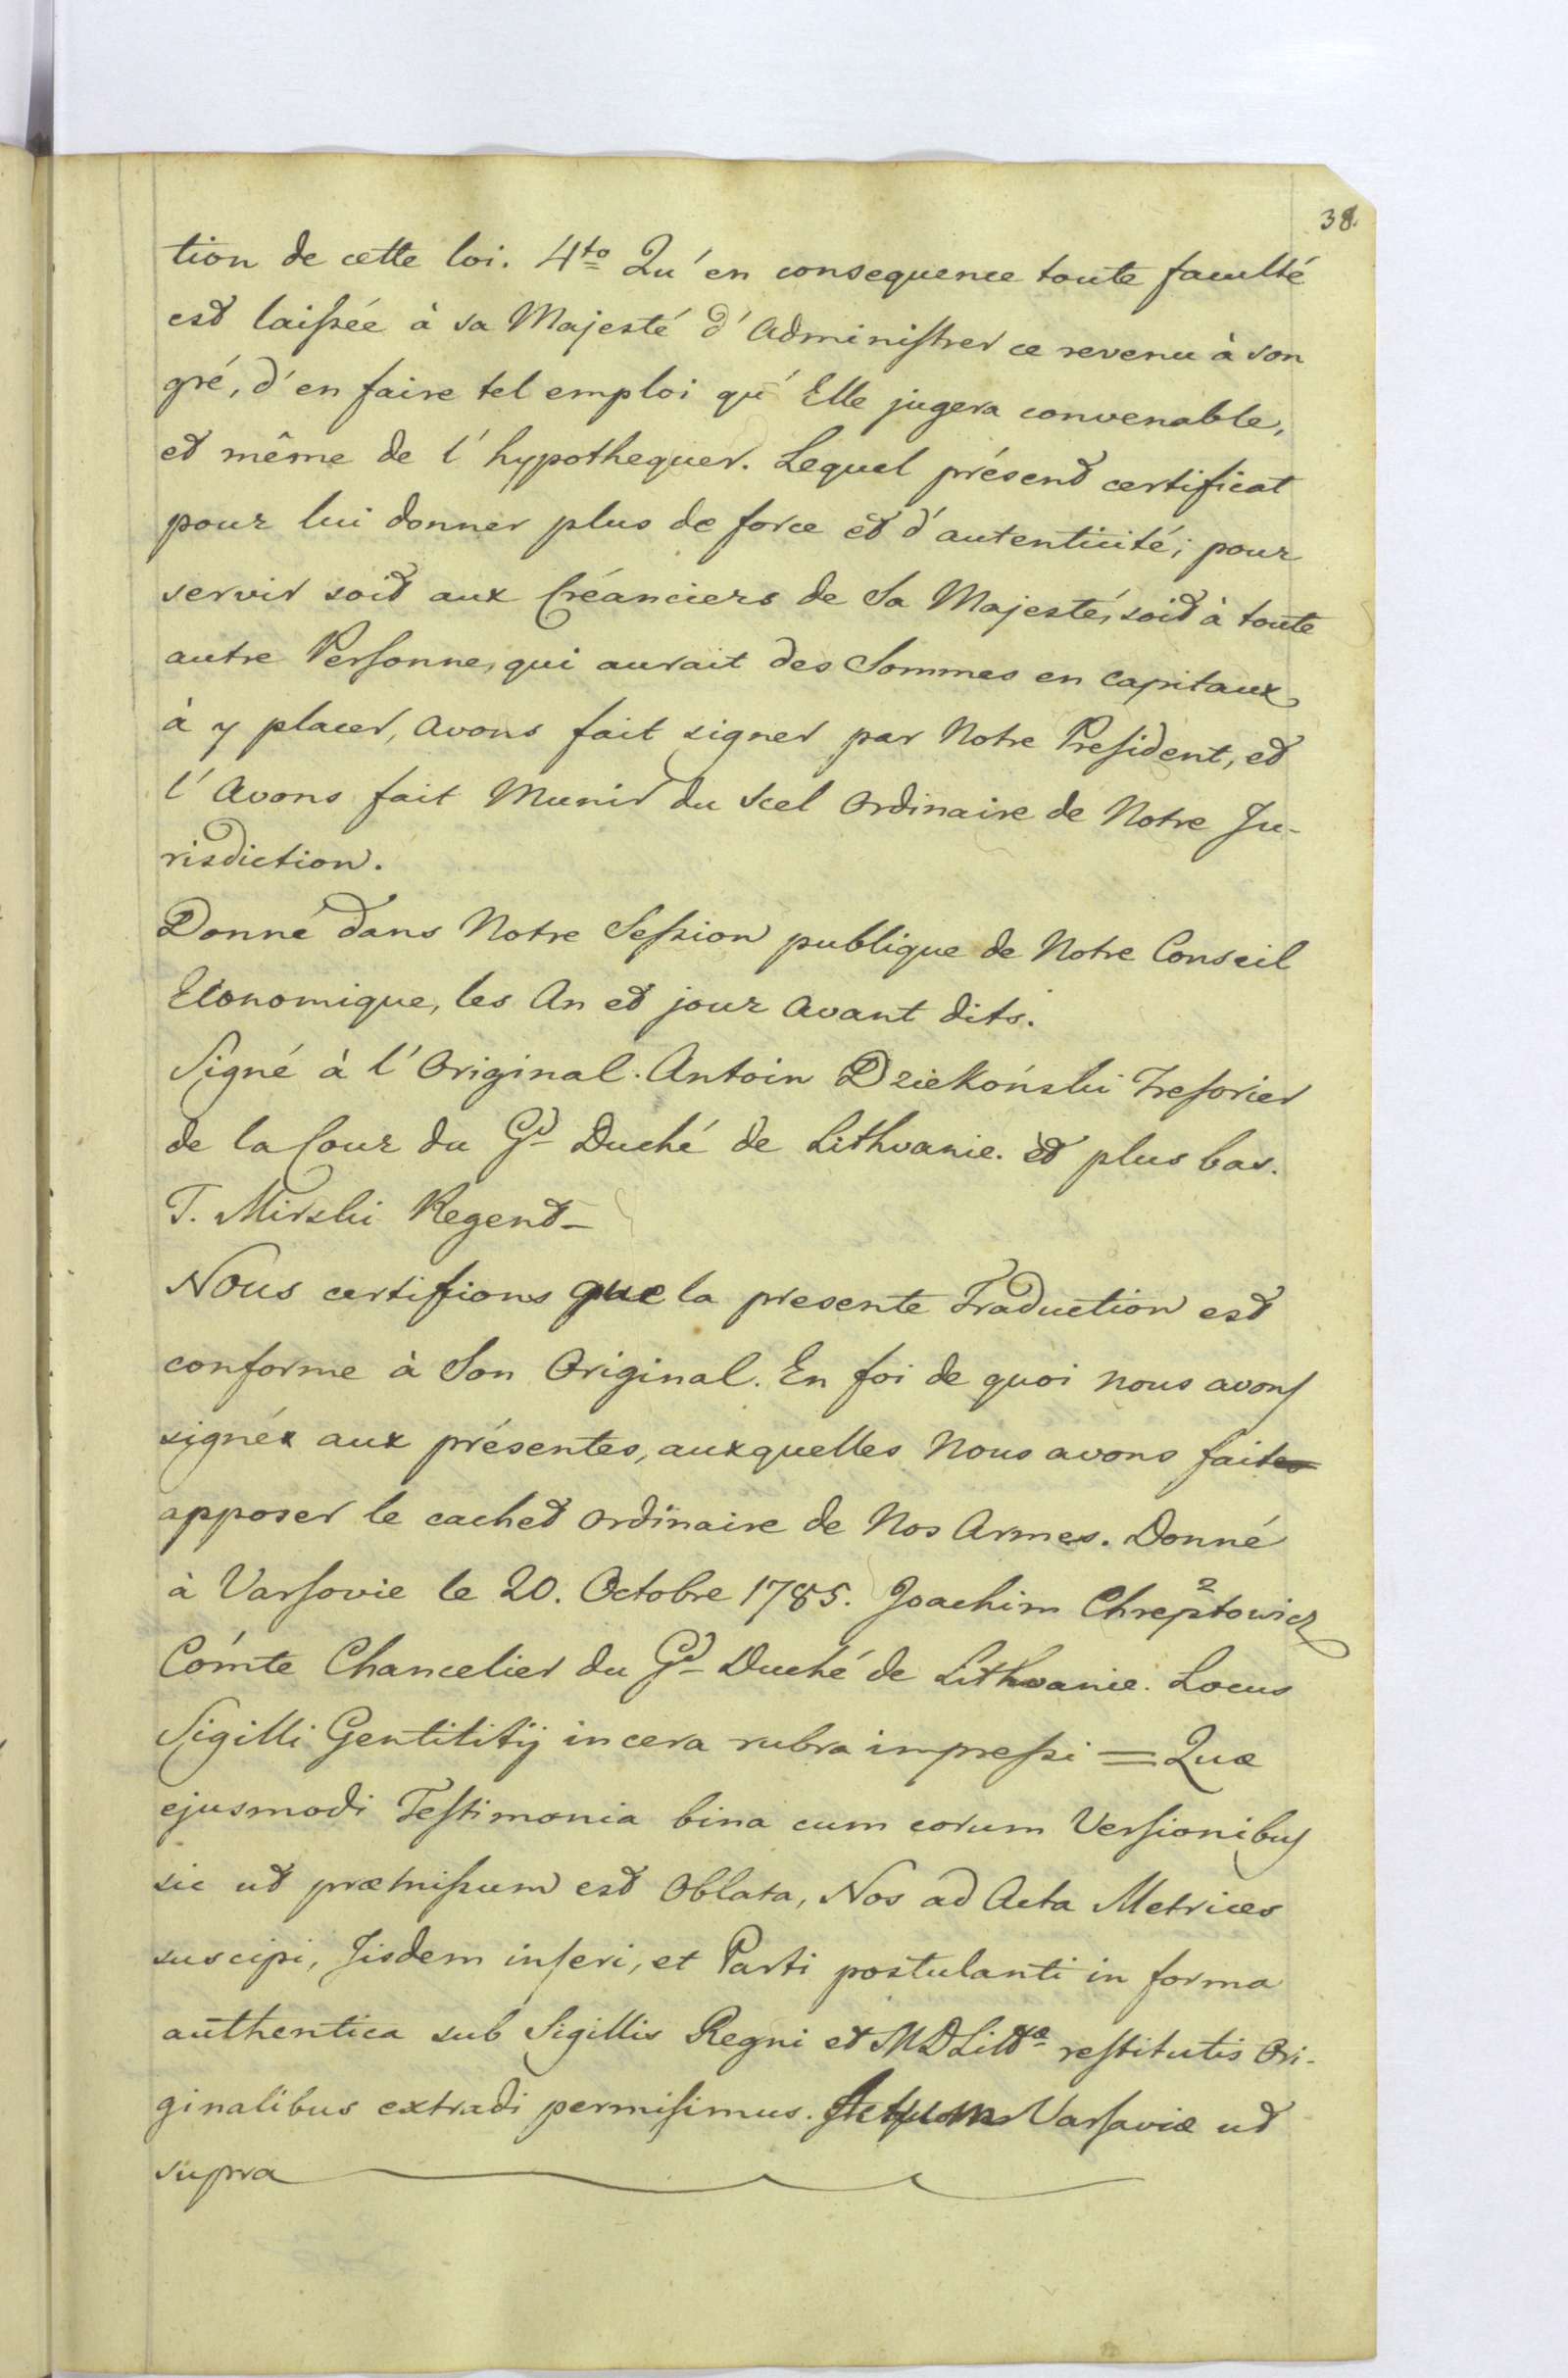 38.
tion de cette loi. 4to Qu'en consequence toute faculté
est laissée à sa Majesté d'Administrer ce revenu à son
gré, d'en faire tel emploi qu'Elle jugera convenable,
et même de l'hypothequer. Lequel présent certificat
pour lui donner plus de force et d'autenticité; pour
servir soit aux Créanciers de Sa Majesté, soit à toute
autre Personne, qui aurait des Sommes en capitaux
à y placer, avons fait signer par Notre President, et
l'Avons fait Munir du Scel Ordinaire de Notre Ju-
risdiction.
Donné dans Notre Session publique de Notre Conseil
Economique, les An et jour avant dits.
Signé à l'Original. Antoin Dziekoński Tresorier
de la Cour du Gd Duché de Lithvanie. et plus bas.
T. Mirski Regent –
Nous certifions que la presente Traduction est
conforme à Son Original. En foi de quoi nous avons
signés aux présentes, auxquelles Nous avons faites
apposer le cachet ordinaire de Nos Armes. Donné
à Varsovie le 20. Octobre 1785. Joachim Chreptowicz
Comte Chancelier du Gd Duché de Lithvanie. Locus
Sigilli Gentilitij in cera rubra impressi = Quæ
ejusmodi Testimonia bina cum eorum Versionibus
sic ut præmissum est Oblata, Nos ad Acta Metrices
suscipi, Jisdem inseri, et Parti postulanti in forma
authentica sub Sigillis Regni et MDLittæ restitutis Ori-
ginalibus extradi permisimus. Actum Varsaviæ ut
supra